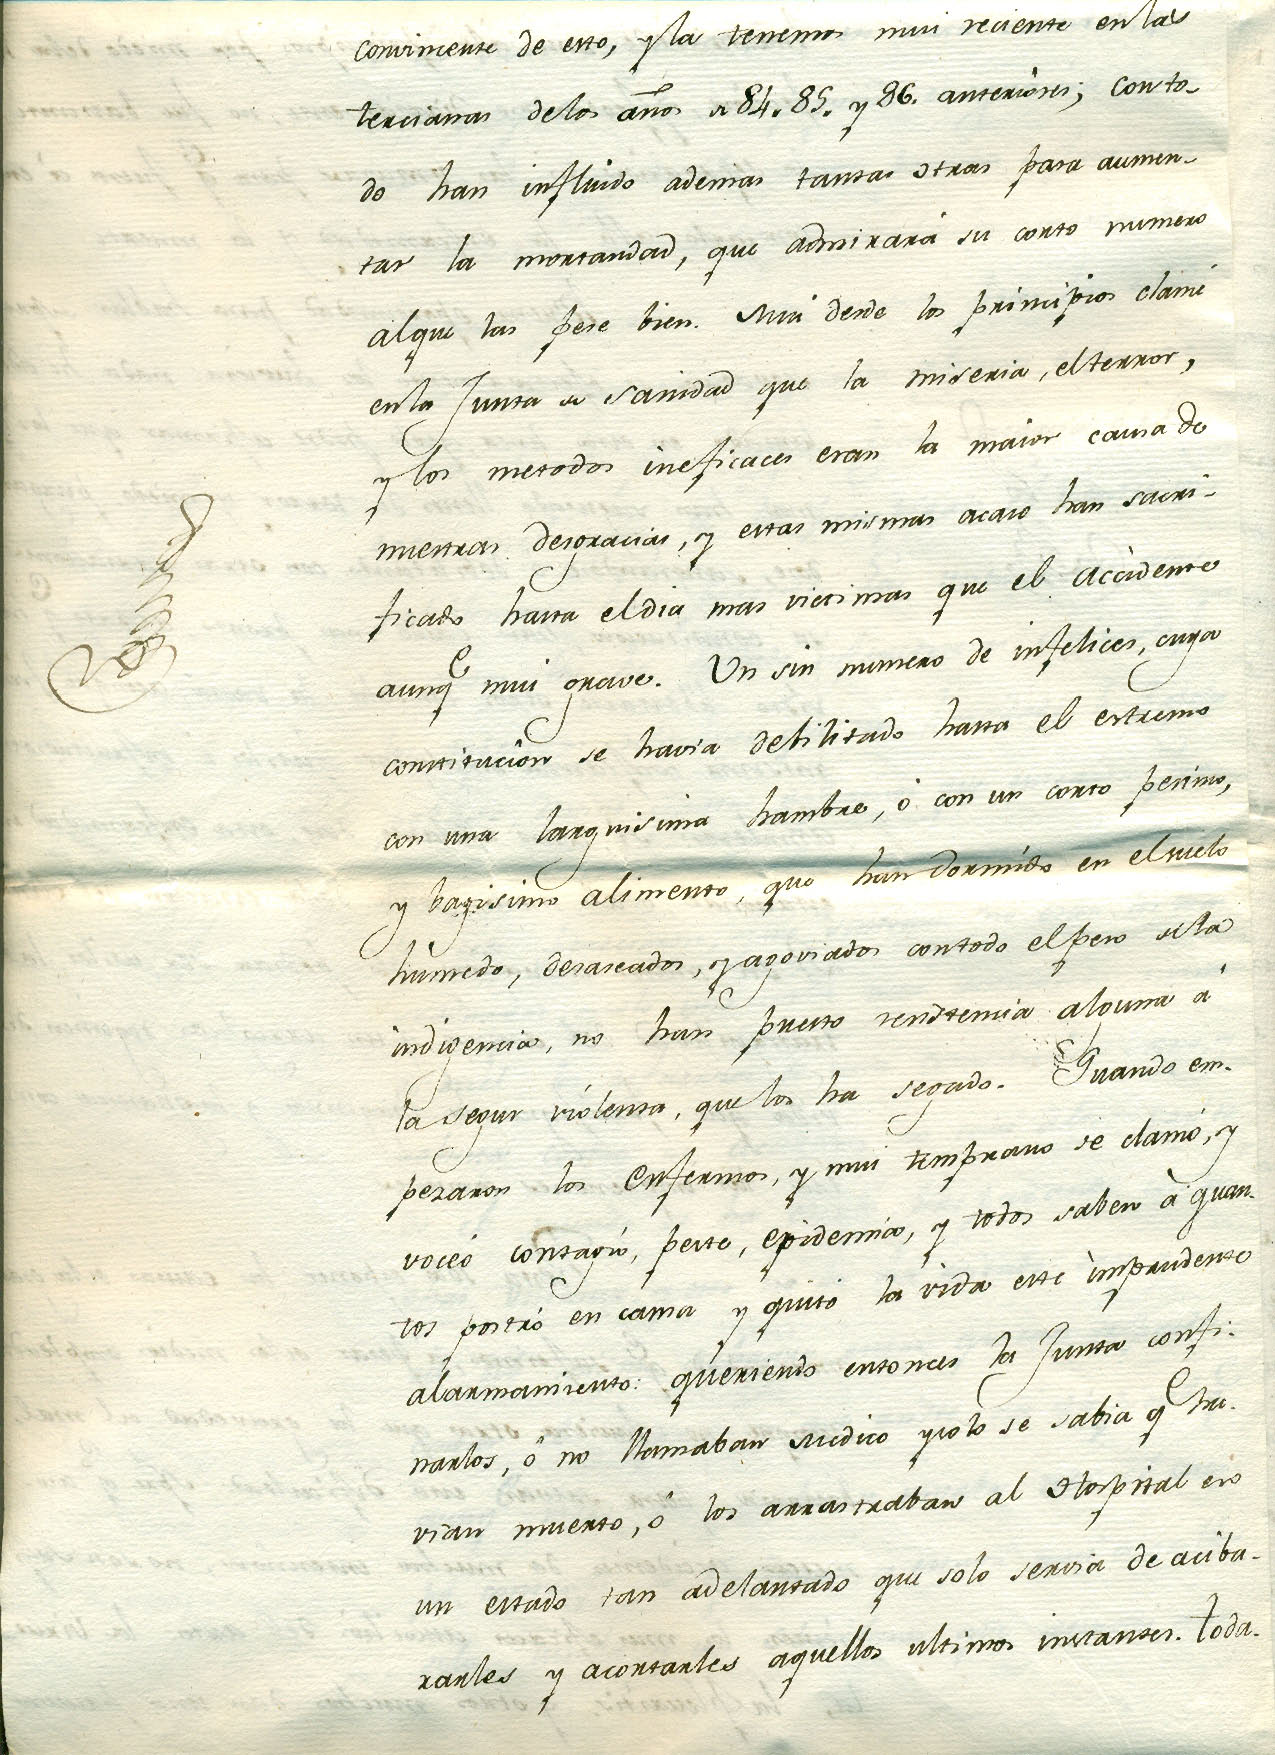 convincente de esto, y la tenemos mui reciente en las
tercianas de los años de 84. 85. y 86. anteriores; con to-
do han influido ademas tantas otras para aumen-
tar la mortandad, que admirará su corto numero
alque las pese bien. Mui desde los principios clamé
en la Junta de Sanidad que la miseria, el terror,
y los metodos ineficaces eran la maior causa de
nuestras desgracias, y estas mismas acaso han sacri-
ficado hasta el dia mas victimas que el accidente
aunqe mui grave. Un sin numero de infelices, cuya
constitucion se havia debilitado hasta el estremo
con una larguisima hambre, ó con un corto pesimo,
y bagisimo alimento, que han dormido en el suelo
húmedo, desaseados, y agoviados con todo el peso de la
indigencia, no han puesto resistencia alguna á
la segur violenta, que los ha segado. Quando em-
pezaron los Enfermos, y mui temprano se clamó, y
voceó contagio, peste, epidemia, y todos saben à quan-
tos postró en cama y quitó la vida este imprudente
alarmamiento: queriendo entonces la Junta confi-
narlos, ó no llamaban Medico y solo se sabia qe ha-
vian muerto, ó los arrastraban al Hospital en
un estado tan adelantado que solo servia de aciba-
rarles y acortarles aquellos ultimos instantes. Toda-